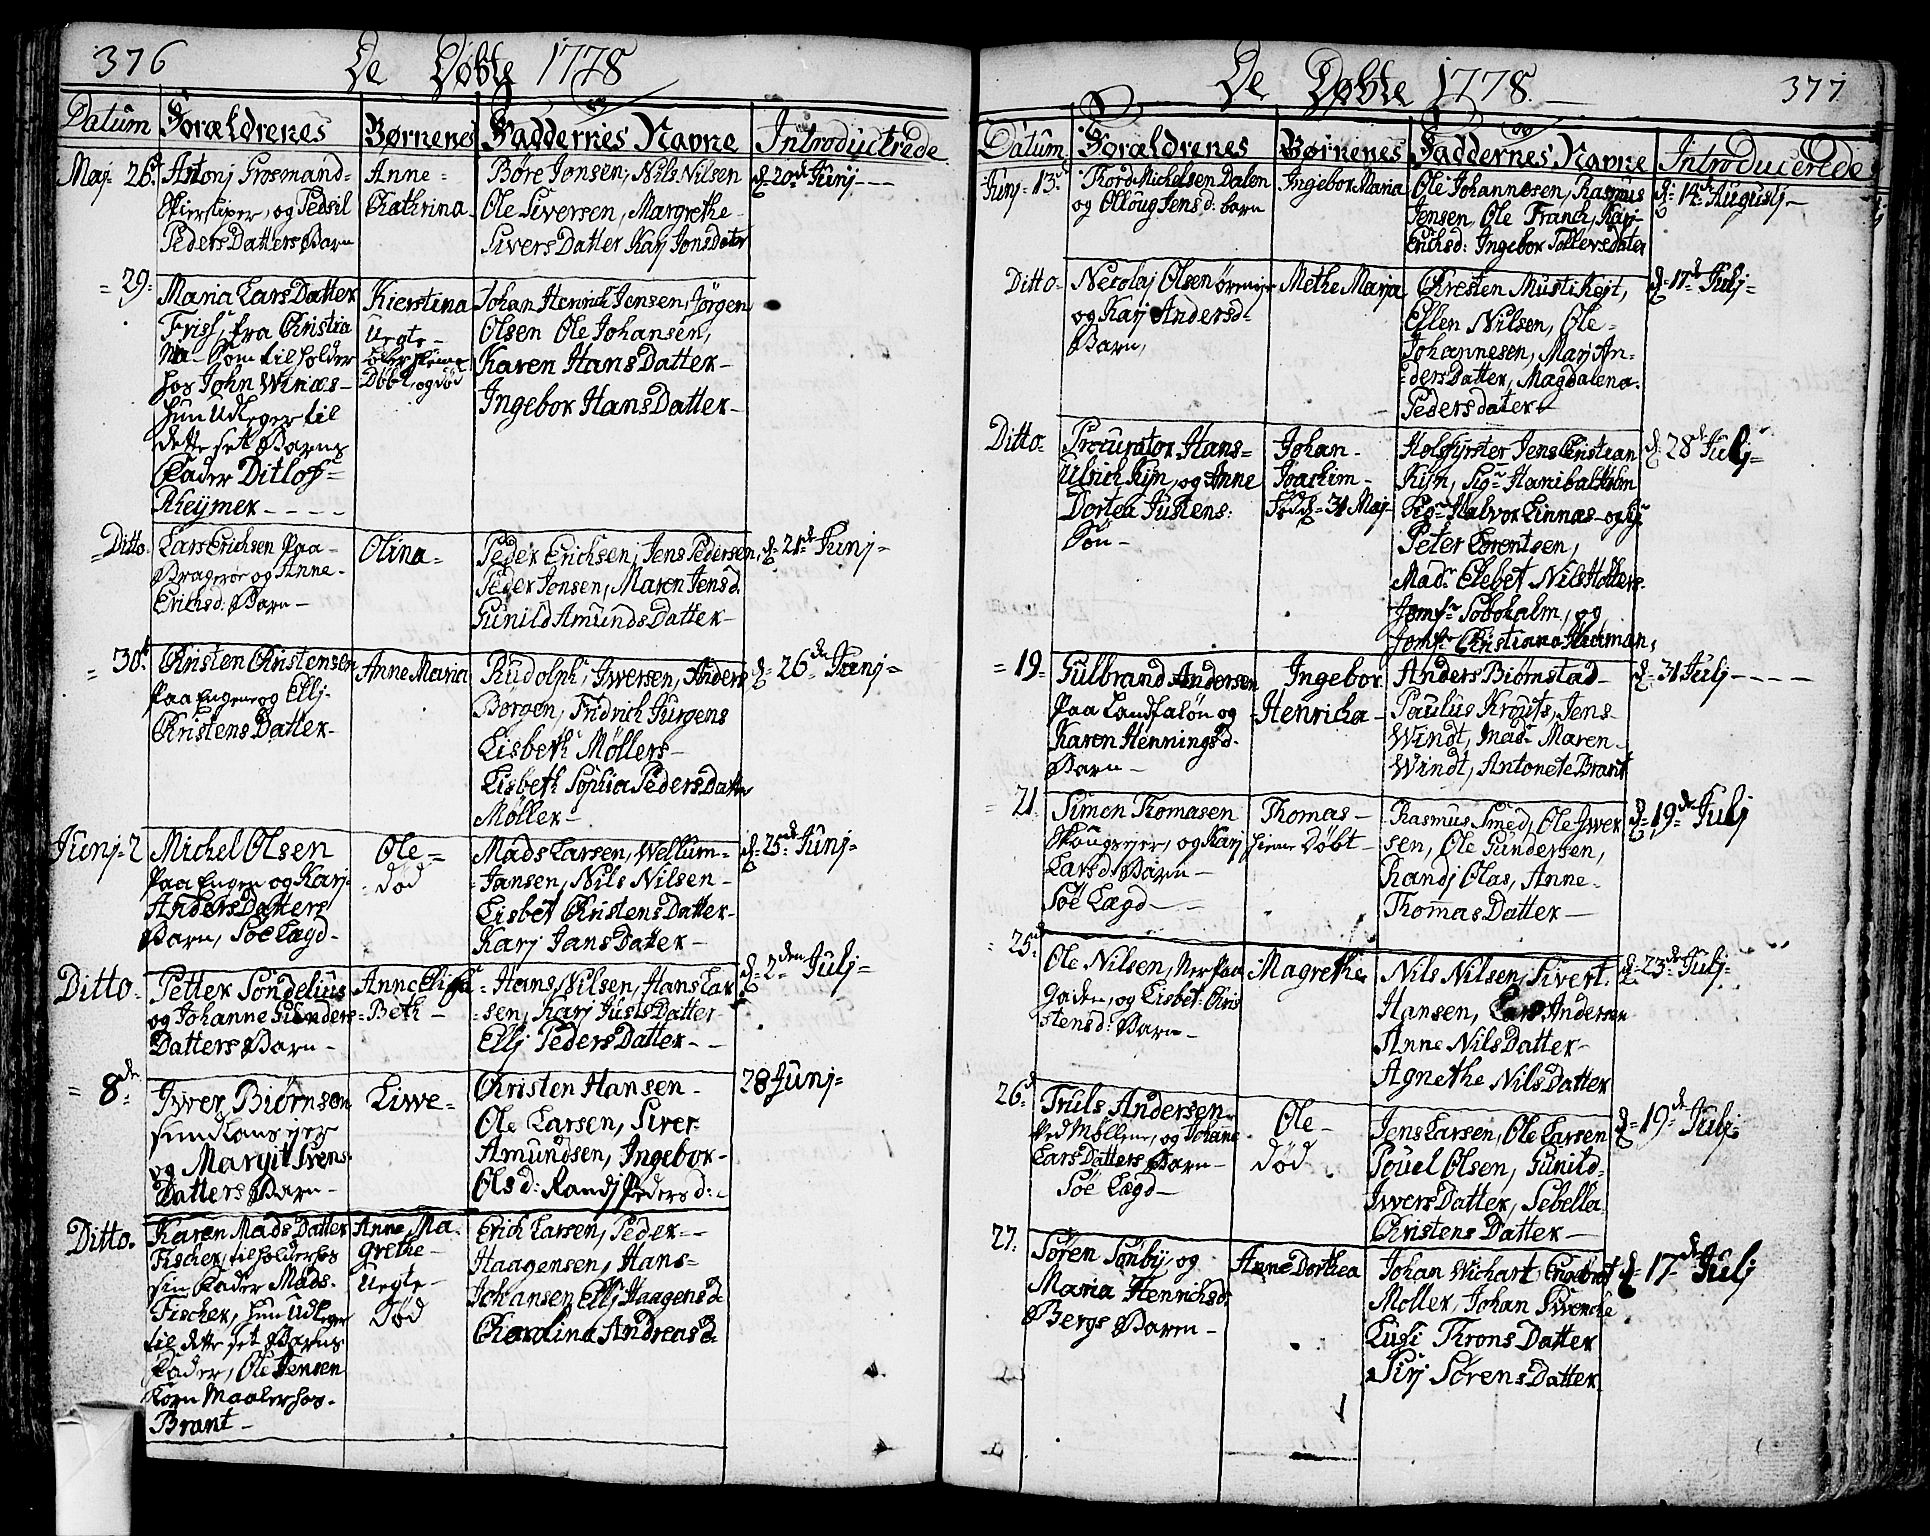 376 De Døbte 1778
Datum Forældrenes Børnenes Faddernes Navne Introductrede
Maj 26d Antonj Grosmand-
Skiersliper, og Pedsil
Peders Datters Barn
Anne-
Cathrina
Børe Jonsen, Nils Nilsen
Ole Siversen, Margrethe-
Sivers Datter Karj Jonsdater
d. 20de Junj---
= 29=
Maria Lars Datter
Friis, fra Christia
Na- Som til holder
hos John Winæs-
hun Udleger til
dette set Barns
Fader Ditlof
Rheymer ----
Kierstina
Uegte-
Døbt, og død
Johan Henrich Jensen, Jørgen
Olsen Ole Johansen,
Karen Hans Datter-
Ingebor Hans Datter-
=Ditto.
Lars Erichsen paa-
Bragerøe og Anne-
Erichsd: Barn-
Olina-
Peder Erichsen, Jens Pedersen
Peder Jonsen, Maren Jensd.
Gunild Amunds Datter-
d= 21de Junj=
= 30t
Christen Christensen
paa Engen og Ellj-
Christens Datter-
Anne Maria
Rudolph, Iwersen, Anders
Borgen, Fridrich Jurgens
Lisbeth Møllers-
Lisbeth Sophia Peders Datter
Møller-
d= 26de Junj=
Junj= 2
Michel Olsen
paa Engen og Karj-
Anders Datters
Barn, Søe Lægd-
Ole-
død
Mads Larsen, Wellum-
Jansen, Nils Nilsen-
Lisbet Christens Datter-
Karj Jans Datter-
d= 25de Junj-
Ditto.
Petter Sondelius
og Johanne Gunders
Datters Barn-
Anne Elisa
=Beth-
Hans Nilsen, Hans Lar
=sen, Karj Justs Datter
Ellj Peders Datter--
d= 2den Julj=
= 8de
Iwer Biørnsen
og Margit Svens
Datters Barn-
Liwe-
Christen Hansen-
Ole Larsen, Siver-
Amundsen, Ingebor-
Olsd: Randj Pedersd:-
28 Junj=
Ditto.
Karen Mads Datter
Fischer, til holder hos
sin Fader Mads-
Fischer, hun Udleger
til dette set Barns
Fader, Ole Jensen
Korn Maaler hos-
Brant-
Anne Ma-
grethe-
Uegte-
død
Erich Larsen, Peder--
Haagensen, Hans-
Johansen Ellj Haagensd
Charolina Andreasd
De Døbte 1778. 377
Datum Forældrenes Børnenes Faddernes Navne Introducerede
Junj= 13d
Thord Michelsen Dalen
og Olloug Jensd: barn
Ingebor Maria
Ole Johannesen, Rasmus
Jensen, Ole Franch, Karj-
Erichsd: Ingebor Tollersdater
d= 14de Augustj-
Ditto-
Necolaj Olsen
og Karj Andersd-
Barn,
Methe Marja
Christen Mustikejt,
Ellen Nilsen, Ole-
Johannesen, Marj An-
=ders Datter, Magdalena-
Pedersdater-
d= 17de Julj=
Ditto.
Procurator Hans-
Ulrich Kyn, og Anne
Dortea Justens:
Søn-
Johan-
Joachim-
Født d= 31 Maj-
Holsfyrster Jens Cristian
Kyn, Sigr Hanibal Holm
Sigr Halvor Linnæs- og Sigr
Peter Lorentsen,
Madr Elebet Nils Holters-
Jomfr Soboholm, og
Jomfr Christiana Heitman,
d= 28de Julj=
= 19=
Gulbrand Andersen
paa Landfaløn og
Karen Henningsd-
Barn-
Ingebor
-Henricha-
Anders Biørnstad-
Paulus Krouts, Jens-
Windt, Made Maren-
Windt, Antonete Brant
d= 31 Julj----
= 21.
Simon Thomasen
Skougsejer, og Karj
Larsd. Barn-
Søe Lægd--
Thomas-
hieme Døbt-
Rasmus Smed, Ole Iwer
sen, Ole Gundersen,
Randj Olas, Anne-
Thomas Datter-
d= 19de Julj
= 25d
Ole Nilsen, Ner paa
Gaden, og Lisbet: Chri
stensd: Barn-
Magrethe
Nils Nilsen, Sivert.
Hansen, Lars Andersen
Anne Nils Datter-
Agnethe Nils Datter
d= 23de Julj-
26d
Truls Andersen
ved Møllene, og Johanne
Lars Datters Barn-
Søe Lægd-
Ole-
død
Jens Larsen, Ole Larsen
Pouel Olsen, Gunild-
Iwers Datter, Sebella
Christens Datter-
d= 19de Julj
27.
Søren Sønby, og
Maria Henrichsd:
Bergs Barn-
Anne Dorthea
Johan Wichart Engebret
Moller, Johan Swencke
Lusi Throns Datter
Sirj Sørens Datter
d= 17de Julj